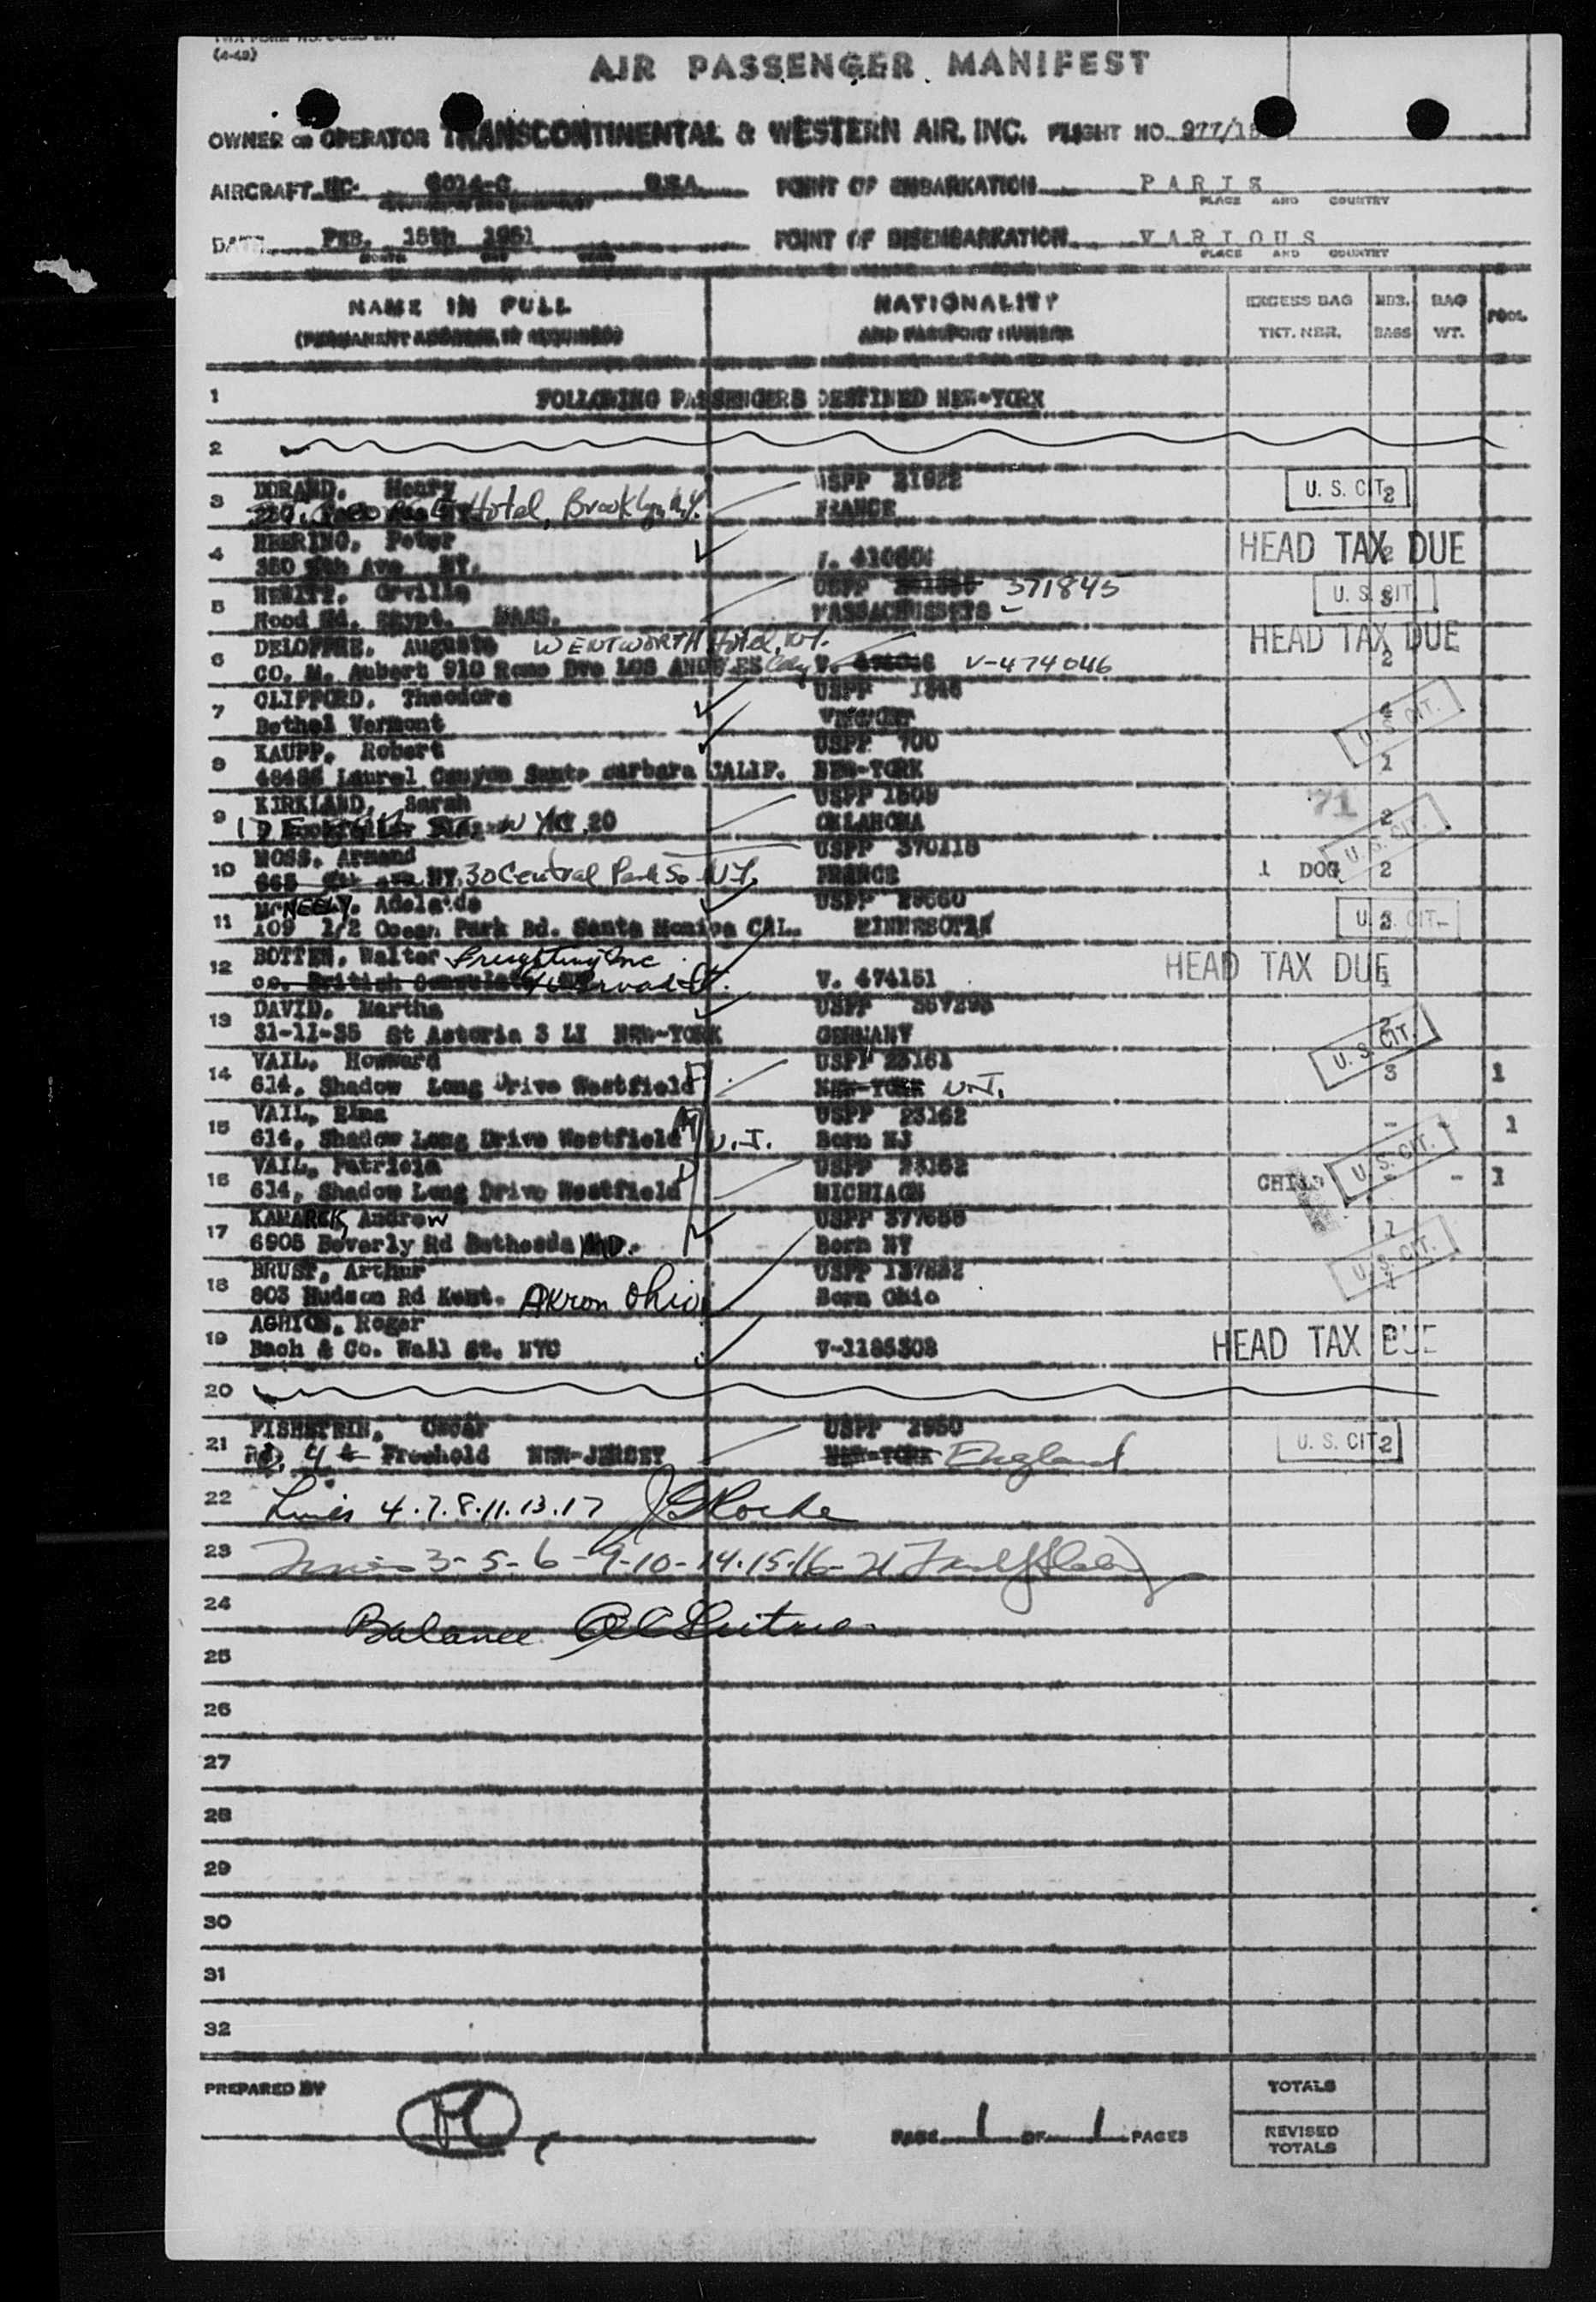 (4-49)
AIR PASSENGER MANIFEST
OWNER OR OPERATOR TRANSCONTINENTAL & WESTERN AIR, INC. FLIGHT NO. 977/15
AIRCRAFT NC- 6014-C USA POINT OF EMBARKATION PARIS
PLACE AND COUNTRY
DATE FEB. 15th 1951 POINT OF DISEMBARKATION VARIOUS
MONTH DAY YEAR PLACE AND COUNTRY
NAME IN FULL NATIONALITY EXCESS BAG NBR. BAG POOL
(PERMANENT ADDRESS, IF REQUIRED) AND PASSPORT NUMBER TKT. NBR. BAGS WT.
1 FOLLOWING PASSENGERS DESTINED NEW-YORK
2
DURAND, Henry USPP 21922
3 Hotel, Brooklyn, N.Y. FRANCE U. S. CIT 2
HEERING, Peter
4 350 5th Ave NY. HEAD TAX DUE 2
HEWITT, Orville USPP 371845
5 Hood Rd. Egypt. MASS. MASSACHUSSETS U. S. CIT
DELOFFRE, Auguste WENTWORTH Hotel, N.Y. HEAD TAX DUE
6 CO. M. Aubert 910 Rome Dve LOS ANGELES V. V-474046 2
CLIFFORD, Theodore USPP 1846
7 Bethel Vermont VERMONT 4 U. S. CIT.
KAUPP, Robert USPP 700
8 Laurel Canyon Santa Barbara CALIF. NEW-YORK 1
KIRKLAND, Sarah USPP 1509 71
9 NY 20 OKLAHOMA 2 U. S. CIT.
MOSS, Armand USPP 370118
10 665 5th ave NY. 30 Central Park So N.Y. FRANCE 1 DOG 2
McNEELY, Adelaide USPP 29660
11 109 1/2 Ocean Park Bd. Santa Monica CAL. MINNESOTA U. S. CIT-
BOTTEN, Walter Freighting Inc
12 co. British Consulate Broad St. V. 474151 HEAD TAX DUE 1
DAVID, Martha USPP 367293
13 31-11-35 St Astoria 3 LI NEW-YORK GERMANY 2 U. S. CIT.
VAIL, Howard USPP 23161
14 614, Shadow Long Drive Westfield NEW-YORK N.J. 3 1
VAIL, Elma USPP 23162
15 614, Shadow Long Drive Westfield N.J. Born NJ - 1
VAIL, Patricia USPP 23162
16 614, Shadow Long Drive Westfield MICHIAGN CHILD U. S. CIT. - 1
KAMAREK, Andrew USPP 377688
17 6905 Beverly Rd Bethesda MD. Born NY U. S. CIT.
BRUST, Arthur USPP 137882
18 803 Hudson Rd Kent. Akron Ohio Born Ohio
AGHION, Roger
19 Bach & Co. Wall St. NYC V-1185308 HEAD TAX DUE
20
FISHSTEIN, Oscar USPP 2950
21 Rd. 4 Freehold NEW-JERSEY NEW-YORK England U. S. CIT 2
22 Lines 4.7.8.11.13.17
23 Lines 3-5-6-9-10-14.15.16-21
24 Balance
25
26
27
28
29
30
31
32
PREPARED BY PAGE 1 OF 1 PAGES
TOTALS
REVISED
TOTALS